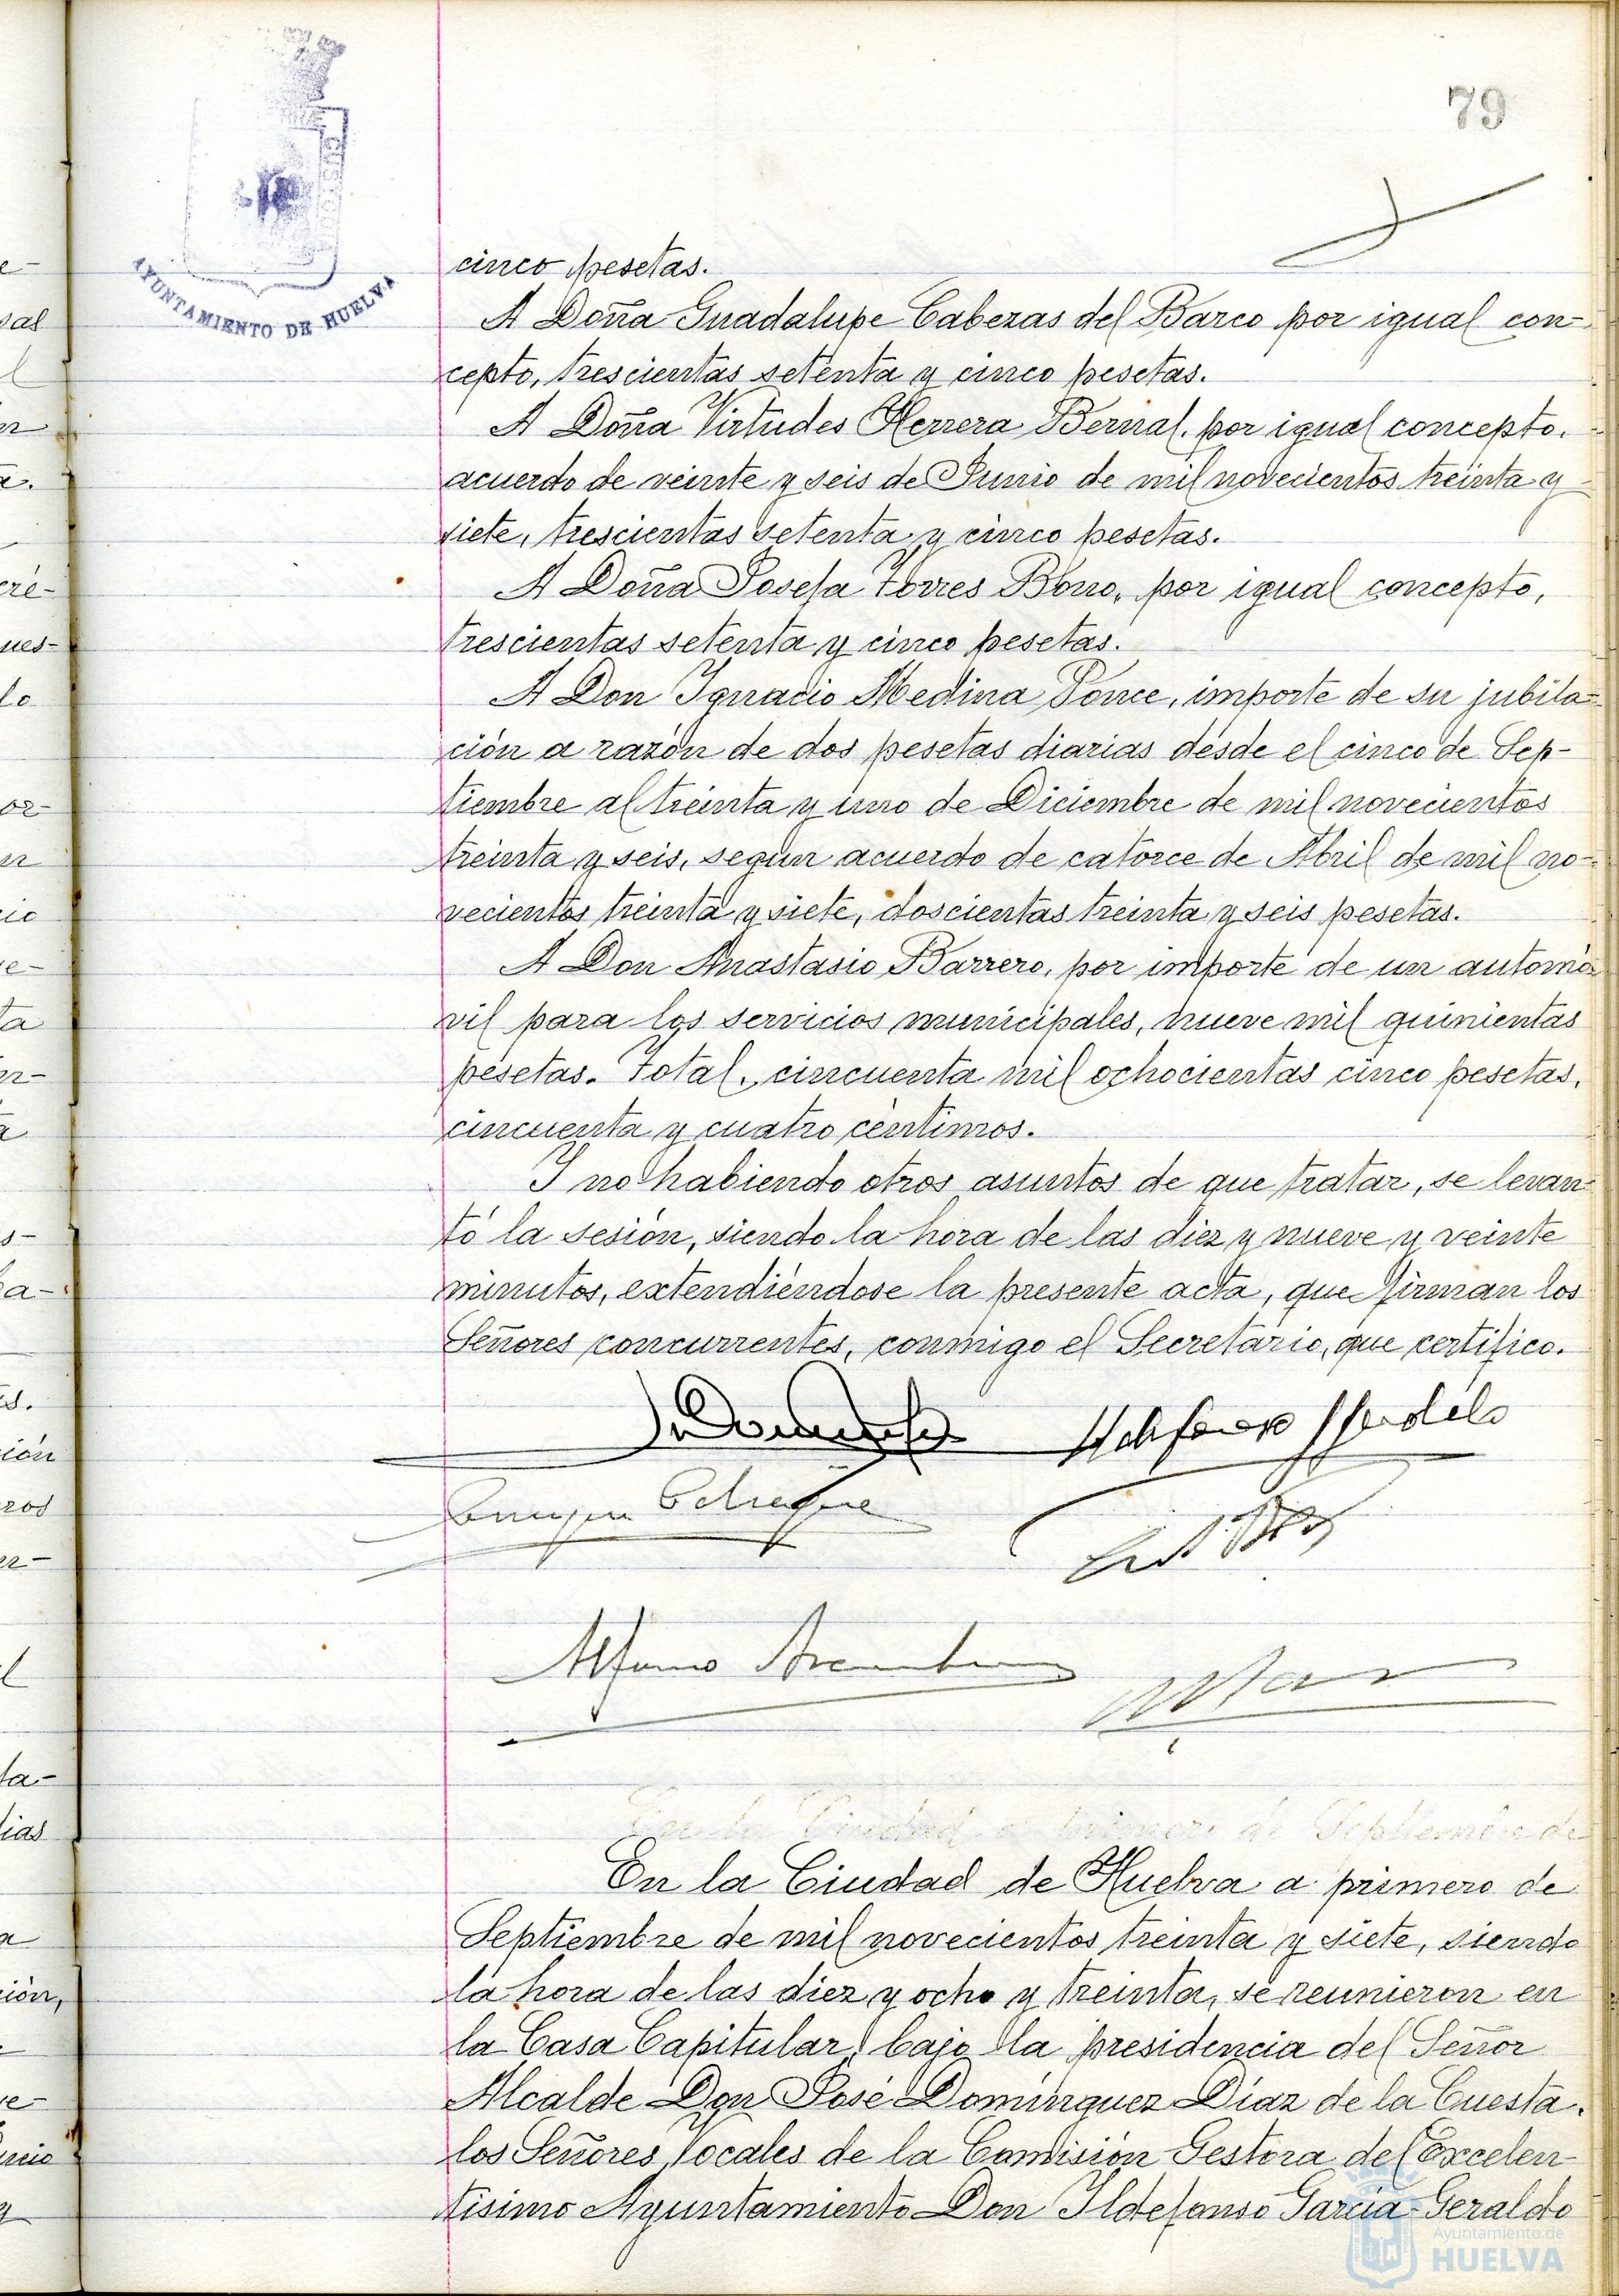 79
AYUNTAMIENTO DE HUELVA
cinco pesetas.
A Doña Guadalupe Cabezas del Barco por igual con-
cepto, trescientas setenta y cinco pesetas.
A Doña Virtudes Herrera Bernal, por igual concepto,
acuerdo de veinte y seis de Junio de mil novecientos treinta y
siete, trescientas setenta y cinco pesetas.
A Doña Josefa Torres Bono, por igual concepto,
trescientas setenta y cinco pesetas.
A Don Ignacio Medina Ponce, importe de su jubila-
ción a razón de dos pesetas diarias desde el cinco de Sep-
tiembre al treinta y uno de Diciembre de mil novecientos
treinta y seis, según acuerdo de catorce de Abril de mil no-
vecientos treinta y siete, doscientas treinta y seis pesetas.
A Don Anastasio Barrero, por importe de un automó-
vil para los servicios municipales, nueve mil quinientas
pesetas. Total, cincuenta mil ochocientas cinco pesetas,
cincuenta y cuatro céntimos.
Y no habiendo otros asuntos de que tratar, se levan-
tó la sesión, siendo la hora de las diez y nueve y veinte
minutos, extendiéndose la presente acta, que firman los
Señores concurrentes, conmigo el Secretario, que certifico.
En la Ciudad a primero de Septiembre de
En la Ciudad de Huelva a primero de
Septiembre de mil novecientos treinta y siete, siendo
la hora de las diez y ocho y treinta, se reunieron en
la Casa Capitular, bajo la presidencia del Señor
Alcalde Don José Domínguez Díaz de la Cuesta,
los Señores Vocales de la Comisión Gestora del Excelen-
tísimo Ayuntamiento Don Ildefonso García-Geraldo
Ayuntamiento de
HUELVA